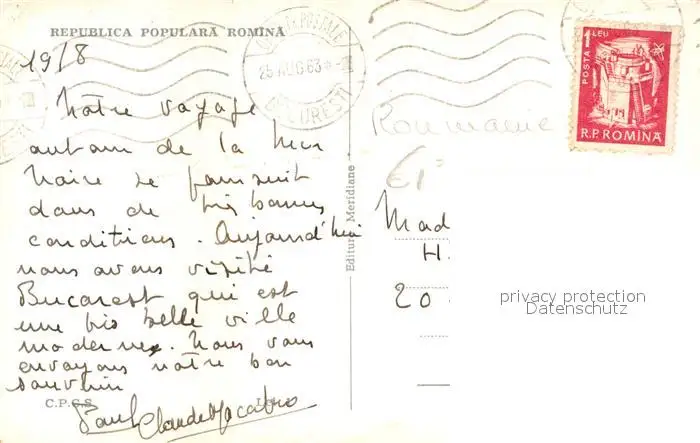 REPUBLICA POPULARĂ ROMÎNĂ
19/8
Notre voyage
autour de la Mer
Noire se poursuit
dans de très bonnes
conditions. Aujourd'hui
nous avons visité
Bucarest qui est
une très belle ville
moderne. Nous vous
envoyons notre bon
souvenir
C.P.C.S.
Paul Claude
Editura Meridiane
25 AUG 63
BUCUREȘTI
POSTA 1 LEU
R.P. ROMINA
Roumanie
€1
Mad
H.
20
privacy protection
Datenschutz